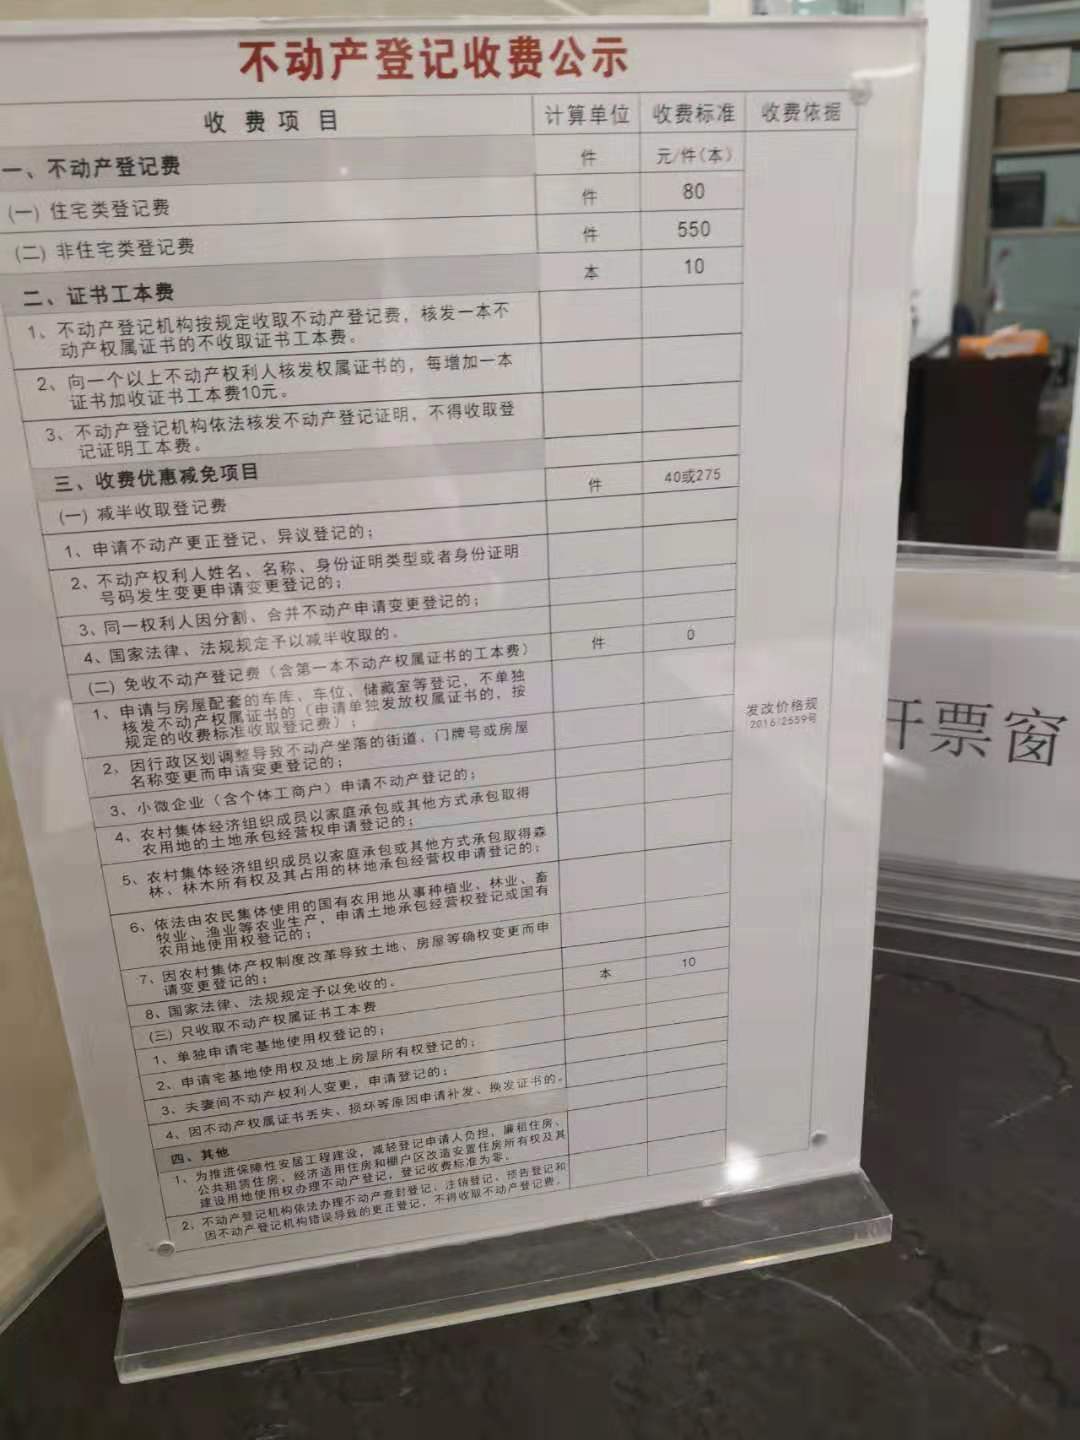 不动产登记收费公示
收费项目 计算单位 收费标准 收费依据
一、不动产登记费 件 元/件(本)
(一) 住宅类登记费 件 80
(二) 非住宅类登记费 件 550
二、证书工本费 本 10
1、不动产登记机构按规定收取不动产登记费，核发一本不
动产权属证书的不收取证书工本费。
2、向一个以上不动产权利人核发权属证书的，每增加一本
证书加收证书工本费10元。
3、不动产登记机构依法核发不动产登记证明，不得收取登
记证明工本费。
三、收费优惠减免项目
(一) 减半收取登记费 件 40或275
1、申请不动产更正登记、异议登记的；
2、不动产权利人姓名、名称、身份证明类型或者身份证明
号码发生变更申请变更登记的；
3、同一权利人因分割、合并不动产申请变更登记的；
4、国家法律、法规规定予以减半收取的。
(二) 免收不动产登记费（含第一本不动产权属证书的工本费） 件 0
1、申请与房屋配套的车库、车位、储藏室等登记，不单独
核发不动产权属证书的（申请单独发放权属证书的，按
规定的收费标准收取登记费）；
发改价格规
2016/2559号
2、因行政区划调整导致不动产坐落的街道、门牌号或房屋
名称变更而申请变更登记的；
3、小微企业（含个体工商户）申请不动产登记的；
4、农村集体经济组织成员以家庭承包或其他方式承包取得
农用地的土地承包经营权申请登记的；
5、农村集体经济组织成员以家庭承包或其他方式承包取得森
林、林木所有权及其占用的林地承包经营权申请登记的；
6、依法由农民集体使用的国有农用地从事种植业、林业、畜
牧业、渔业等农业生产，申请土地承包经营权登记或国有
农用地使用权登记的；
7、因农村集体产权制度改革导致土地、房屋等确权变更而申
请变更登记的；
8、国家法律、法规规定予以免收的。
(三) 只收取不动产权属证书工本费 本 10
1、单独申请宅基地使用权登记的；
2、申请宅基地使用权及地上房屋所有权登记的；
3、夫妻间不动产权利人变更，申请登记的；
4、因不动产权属证书丢失、损坏等原因申请补发、换发证书的。
四、其他
1、为推进保障性安居工程建设，减轻登记申请人负担，廉租住房、
公共租赁住房、经济适用住房和棚户区改造安置住房所有权及其
建设用地使用权办理不动产登记，登记收费标准为零。
2、不动产登记机构依法办理不动产查封登记、注销登记、预告登记和
因不动产登记机构错误导致的更正登记，不得收取不动产登记费。
开票窗